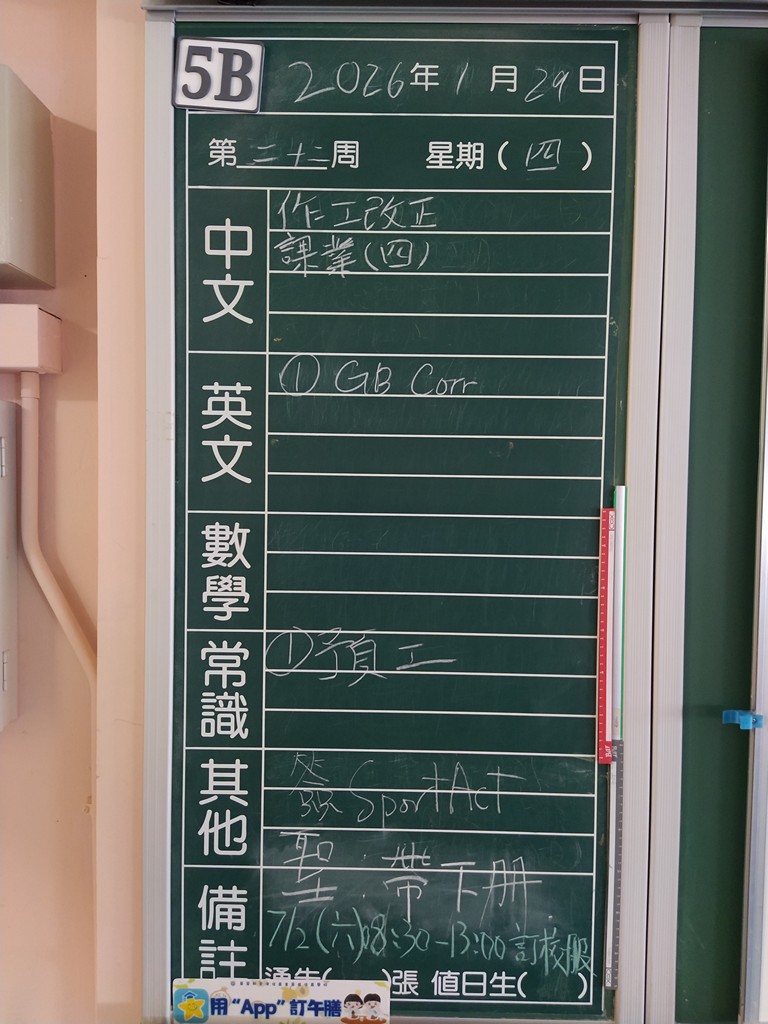 5B 2026年1月29日
第二十二周 星期(四)
中文
作工改正
課業(四)
英文
① GB Corr
數學
常識
①預工
其他
簽 SportAct
聖:帶下册
備註
7/2(六)08:30-13:00訂校服
通告( )張 值日生( )
用“App”訂午膳